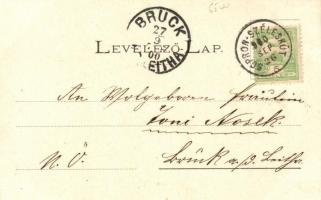 BRUCK
27
9
00
LEITHA
LEVELEZŐ-LAP.
SOPRON-SZÉLESKÚT
An Wolgeboren Fräulein
Toni Nosek
N.Ö. Bruck a/d. Leitha